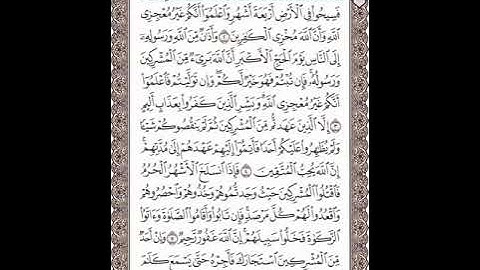 فَسِيحُوا۟ فِى ٱلْأَرْضِ أَرْبَعَةَ أَشْهُرٍ وَٱعْلَمُوٓا۟ أَنَّكُمْ غَيْرُ مُعْجِزِى
ٱللَّهِ وَأَنَّ ٱللَّهَ مُخْزِى ٱلْكَٰفِرِينَ ٢ وَأَذَٰنٌ مِّنَ ٱللَّهِ وَرَسُولِهِۦٓ
إِلَى ٱلنَّاسِ يَوْمَ ٱلْحَجِّ ٱلْأَكْبَرِ أَنَّ ٱللَّهَ بَرِىٓءٌ مِّنَ ٱلْمُشْرِكِينَ
وَرَسُولُهُۥ فَإِن تُبْتُمْ فَهُوَ خَيْرٌ لَّكُمْ وَإِن تَوَلَّيْتُمْ فَٱعْلَمُوٓا۟
أَنَّكُمْ غَيْرُ مُعْجِزِى ٱللَّهِ وَبَشِّرِ ٱلَّذِينَ كَفَرُوا۟ بِعَذَابٍ أَلِيمٍ
٣ إِلَّا ٱلَّذِينَ عَٰهَدتُّم مِّنَ ٱلْمُشْرِكِينَ ثُمَّ لَمْ يَنقُصُوكُمْ شَيْـًٔا
وَلَمْ يُظَٰهِرُوا۟ عَلَيْكُمْ أَحَدًا فَأَتِمُّوٓا۟ إِلَيْهِمْ عَهْدَهُمْ إِلَىٰ مُدَّتِهِمْ
إِنَّ ٱللَّهَ يُحِبُّ ٱلْمُتَّقِينَ ٤ فَإِذَا ٱنسَلَخَ ٱلْأَشْهُرُ ٱلْحُرُمُ
فَٱقْتُلُوا۟ ٱلْمُشْرِكِينَ حَيْثُ وَجَدتُّمُوهُمْ وَخُذُوهُمْ وَٱحْصُرُوهُمْ
وَٱقْعُدُوا۟ لَهُمْ كُلَّ مَرْصَدٍ فَإِن تَابُوا۟ وَأَقَامُوا۟ ٱلصَّلَوٰةَ وَءَاتَوُا۟
ٱلزَّكَوٰةَ فَخَلُّوا۟ سَبِيلَهُمْ إِنَّ ٱللَّهَ غَفُورٌ رَّحِيمٌ ٥ وَإِنْ أَحَدٌ
مِّنَ ٱلْمُشْرِكِينَ ٱسْتَجَارَكَ فَأَجِرْهُ حَتَّىٰ يَسْمَعَ كَلَٰمَ